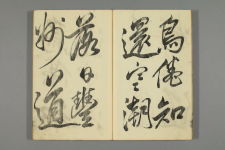 鳥倦知
還空潮
落日豐
州道